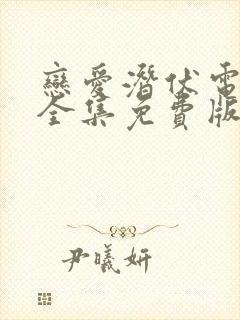 戀愛潛伏電
全集免費版
尹曦妍